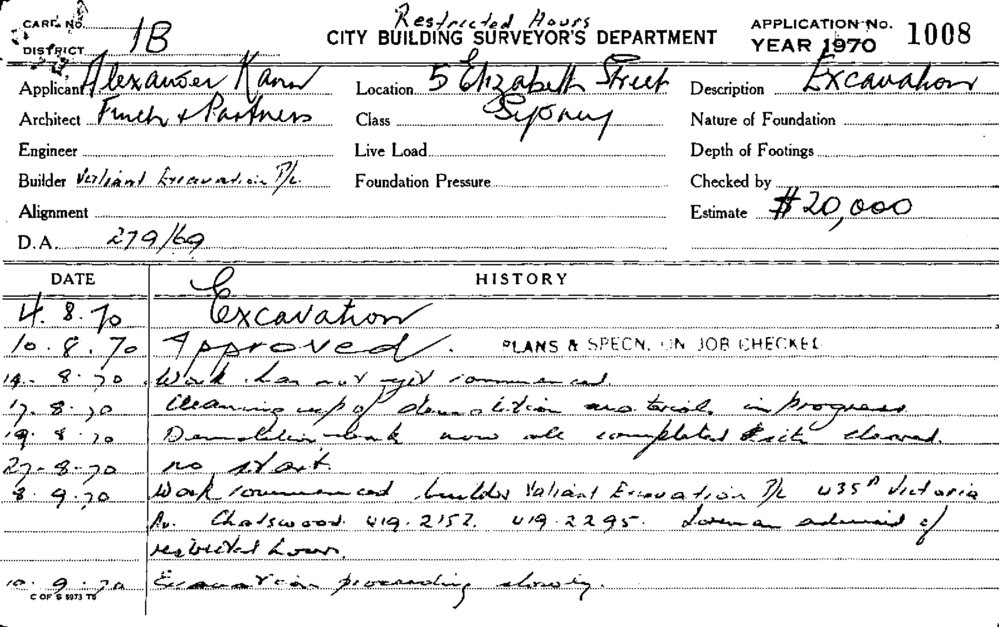 Restricted Hours
CARD No.
CITY BUILDING SURVEYOR'S DEPARTMENT
APPLICATION No. 1008
DISTRICT 1B
YEAR 1970
Applicant Alexander Kann
Location 5 Elizabeth Street
Description Excavation
Architect Finch & Partners
Class Sydney
Nature of Foundation
Engineer
Live Load
Depth of Footings
Builder Valiant Excavation P/L.
Foundation Pressure
Checked by
Alignment
Estimate $20,000
D.A. 279/69
DATE HISTORY
4.8.70 Excavation
10.8.70 Approved. PLANS & SPECN. ON JOB CHECKED
14.8.70 Work has not yet commenced.
17.8.70 Cleaning up of demolition materials in progress
19.8.70 Demolition work now all completed & site cleared.
27-8-70 no start.
8.9.70 Work commenced builder Valiant Excavation P/L 435A Victoria
Av. Chatswood. 419.2152. 419.2295. foreman advised of
restricted hours.
10.9.70 Excavation proceeding slowly.
C OF S 5973 T5